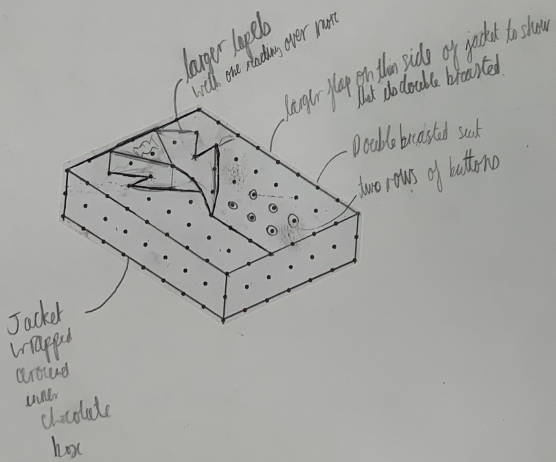 larger lapels
with one reading over more
larger flap on this side of jacket to show
that its double breasted.
Double breasted suit
two rows of buttons
Jacket
wrapped
around
inner
chocolate
box